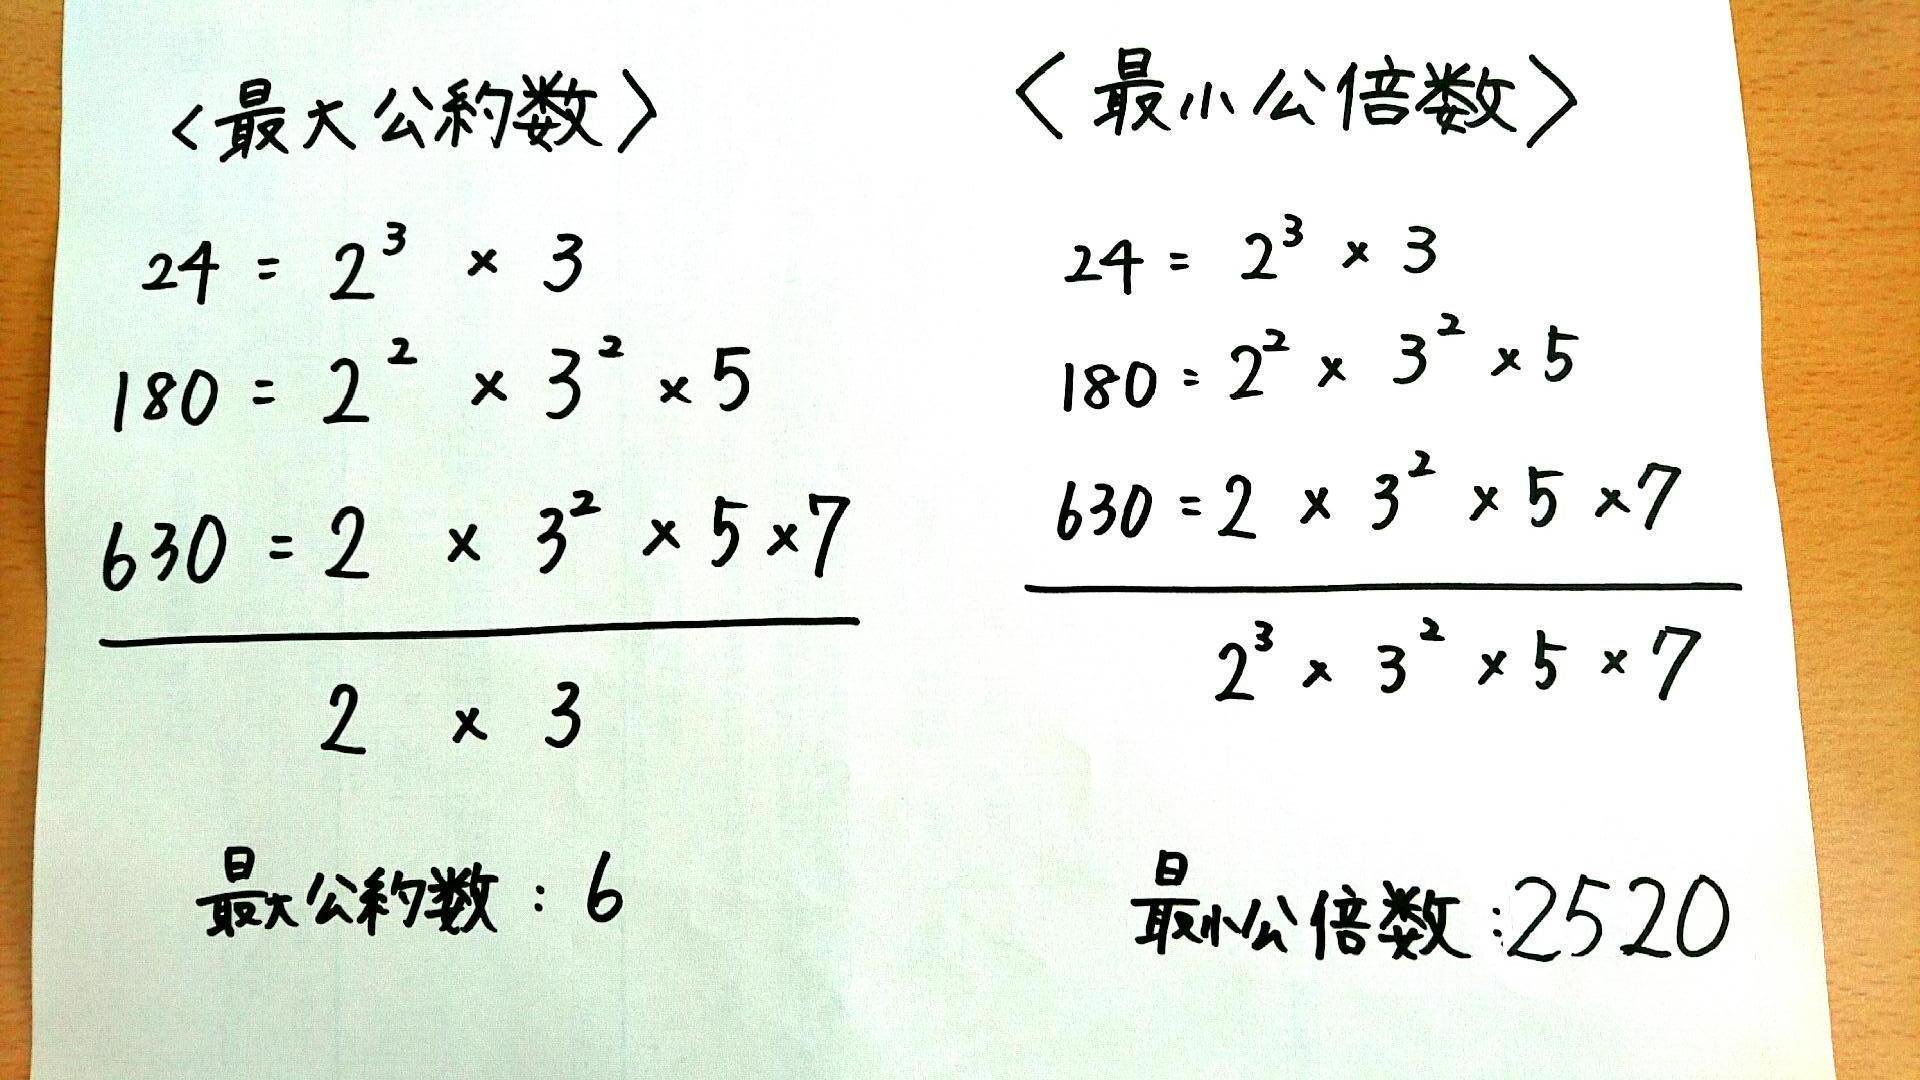 〈最大公約数〉
24 = 2³ × 3
180 = 2² × 3² × 5
630 = 2 × 3² × 5 × 7
2 × 3
最大公約数 : 6
〈最小公倍数〉
24 = 2³ × 3
180 = 2² × 3² × 5
630 = 2 × 3² × 5 × 7
2³ × 3² × 5 × 7
最小公倍数 : 2520